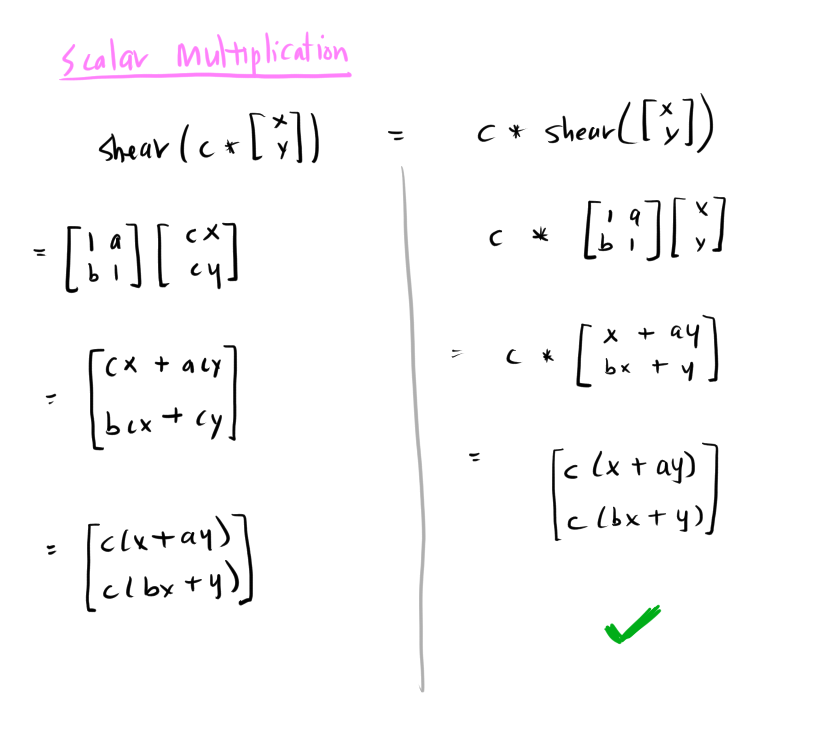 Scalar Multiplication
shear(c * [x y]) = c * shear([x y])
= [1 a b 1] [cx cy]
= [cx + acy bcx + cy]
= [c(x+ay) c(bx+y)]
c * [1 a b 1] [x y]
= c * [x + ay bx + y]
= [c(x + ay) c(bx + y)]